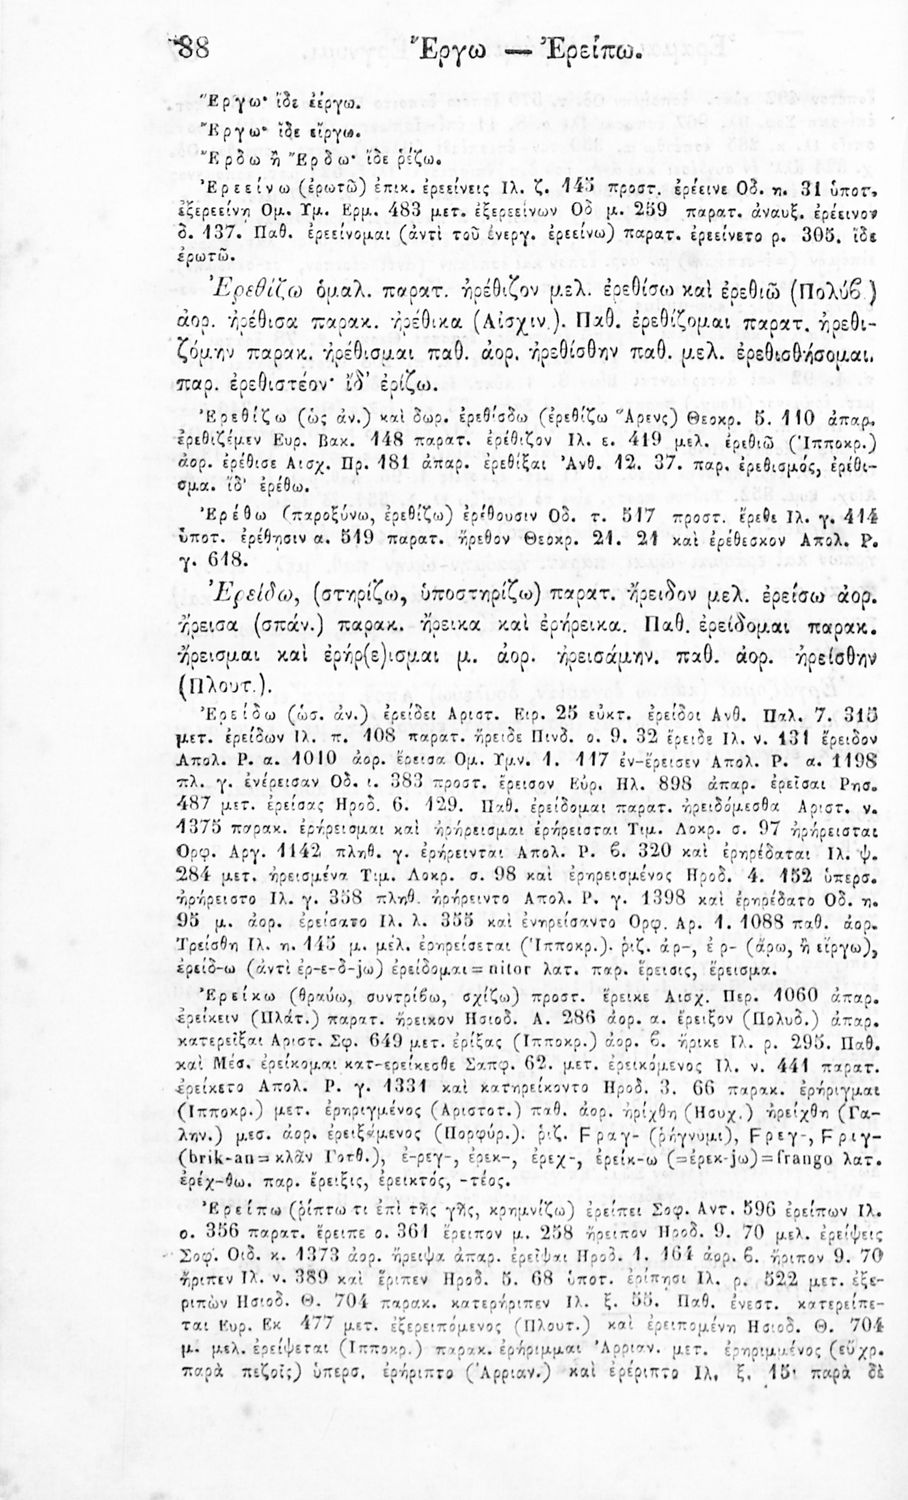 88 Ἔργω — Ἐρείπω.
Ἔργω· ἴδε ἐέργω.
Ἔργω· ἴδε εἴργω.
Ἔρδω ἢ Ἕρδω· ἴδε ῥέζω.
Ἐρεείνω (ἐρωτῶ) ἐπικ. ἐρεείνεις Ιλ. ζ. 145 προστ. ἐρέεινε Οδ. η. 31 ὑποτ.
ἐξερεείνῃ Ομ. Υμ. Ερμ. 483 μετ. ἐξερεείνων Οδ μ. 259 παρατ. ἀναυξ. ἐρέεινον
δ. 137. Παθ. ἐρεείνομαι (ἀντὶ τοῦ ἐνεργ. ἐρεείνω) παρατ. ἐρεείνετο ρ. 305. ἴδε
ἐρωτῶ.
Ἐρεθίζω ὁμαλ. παρατ. ἠρέθιζον μελ. ἐρεθίσω καὶ ἐρεθιῶ (Πολύβ.)
ἀορ. ἠρέθισα παρακ. ἠρέθικα (Αἰσχιν.). Παθ. ἐρεθίζομαι παρατ. ἠρεθι-
ζόμην παρακ. ἠρέθισμαι παθ. ἀορ. ἠρεθίσθην παθ. μελ. ἐρεθισθήσομαι.
παρ. ἐρεθιστέον· ἴδ' ἐρίζω.
Ἐρεθίζω (ὡς ἀν.) καὶ δωρ. ἐρεθίσδω (ἐρεθίζω Ἄρενς) Θεοκρ. 5. 110 ἀπαρ.
ἐρεθιζέμεν Ευρ. Βακ. 148 παρατ. ἐρέθιζον Ιλ. ε. 419 μελ. ἐρεθιῶ (Ἱπποκρ.)
ἀορ. ἐρέθισε Αισχ. Πρ. 181 ἀπαρ. ἐρεθίξαι Ἀνθ. 12. 37. παρ. ἐρεθισμός, ἐρέθι-
σμα. ἴδ' ἐρέθω.
Ἐρέθω (παροξύνω, ἐρεθίζω) ἐρέθουσιν Οδ. τ. 517 προστ. ἔρεθε Ιλ. γ. 414
ὑποτ. ἐρέθῃσιν α. 519 παρατ. ἤρεθον Θεοκρ. 21. 21 καὶ ἐρέθεσκον Απολ. Ρ.
γ. 618.
Ἐρείδω, (στηρίζω, ὑποστηρίζω) παρατ. ἤρειδον μελ. ἐρείσω ἀορ.
ἤρεισα (σπάν.) παρακ. ἤρεικα καὶ ἐρήρεικα. Παθ. ἐρείδομαι παρακ.
ἤρεισμαι καὶ ἐρήρ(ε)ισμαι μ. ἀορ. ἠρεισάμην. παθ. ἀορ. ἠρείσθην
(Πλουτ.).
Ἐρείδω (ὡσ. ἀν.) ἐρείδει Αριστ. Ειρ. 25 εὐκτ. ἐρείδοι Ανθ. Παλ. 7. 315
μετ. ἐρείδων Ιλ. π. 108 παρατ. ἤρειδε Πινδ. ο. 9. 32 ἔρειδε Ιλ. ν. 131 ἔρειδον
Απολ. Ρ. α. 1010 ἀορ. ἔρεισα Ομ. Υμν. 1. 117 ἐν-έρεισεν Απολ. Ρ. α. 1198
πλ. γ. ἐνέρεισαν Οδ. ι. 383 προστ. ἔρεισον Εὐρ. Ηλ. 898 ἀπαρ. ἐρεῖσαι Ρησ.
487 μετ. ἐρείσας Ηροδ. 6. 129. Παθ. ἐρείδομαι παρατ. ἠρειδόμεσθα Αριστ. ν.
1375 παρακ. ἐρήρεισμαι καὶ ἠρήρεισμαι ἐρήρεισται Τιμ. Λοκρ. σ. 97 ἠρήρεισται
Ορφ. Αργ. 1142 πληθ. γ. ἐρήρεινται Απολ. Ρ. β. 320 καὶ ἐρηρέδαται Ιλ. ψ.
284 μετ. ἠρεισμένα Τιμ. Λοκρ. σ. 98 καὶ ἐρηρεισμένος Ηροδ. 4. 152 ὑπερσ.
ἠρήρειστο Ιλ. γ. 358 πληθ. ἠρήρειντο Απολ. Ρ. γ. 1398 καὶ ἐρηρέδατο Οδ. η.
95 μ. ἀορ. ἐρείσατο Ιλ. λ. 355 καὶ ἐνηρείσαντο Ορφ. Αρ. 1. 1088 παθ. ἀορ.
Ἐρείσθη Ιλ. η. 145 μ. μέλ. ἐρηρείσεται (Ἱπποκρ.). ῥιζ. ἀρ-, ἐρ- (ἄρω, ἢ εἴργω),
ἐρείδ-ω (ἀντὶ ἐρ-ε-δ-jω) ἐρείδομαι=nitor λατ. παρ. ἔρεισις, ἔρεισμα.
Ἐρείκω (θραύω, συντρίβω, σχίζω) προστ. ἔρεικε Αισχ. Περ. 1060 ἀπαρ.
ἐρείκειν (Πλάτ.) παρατ. ἤρεικον Ησιοδ. Α. 286 ἀορ. α. ἔρειξον (Πολυδ.) ἀπαρ.
κατερεῖξαι Αριστ. Σφ. 649 μετ. ἐρίξας (Ιπποκρ.) ἀορ. β. ἤρικε Ιλ. ρ. 295. Παθ.
καὶ Μέσ. ἐρείκομαι κατ-ερείκεσθε Σαπφ. 62. μετ. ἐρεικόμενος Ιλ. ν. 441 παρατ.
ἐρείκετο Απολ. Ρ. γ. 1331 καὶ κατηρείκοντο Ηροδ. 3. 66 παρακ. ἐρήριγμαι
(Ιπποκρ.) μετ. ἐρηριγμένος (Αριστοτ.) παθ. ἀορ. ἠρίχθη (Ησυχ.) ἠρείχθη (Γα-
λην.) μεσ. ἀορ. ἐρειξάμενος (Πορφύρ.). ῥιζ. Fραγ- (ῥήγνυμι), Fρεγ-, Fριγ-
(brik-an=κλᾶν Γοτθ.), ἐ-ρεγ-, ἐρεκ-, ἐρεχ-, ἐρείκ-ω (=ἐρεκ-jω)=frango λατ.
ἐρέχ-θω. παρ. ἔρειξις, ἐρεικτός, -τέος.
Ἐρείπω (ῥίπτω τι ἐπὶ τῆς γῆς, κρημνίζω) ἐρείπει Σοφ. Αντ. 596 ἐρείπων Ιλ.
ο. 356 παρατ. ἔρειπε ο. 361 ἔρειπον μ. 258 ἤρειπον Ηροδ. 9. 70 μελ. ἐρείψεις
Σοφ. Οιδ. κ. 1373 ἀορ. ἤρειψα ἀπαρ. ἐρεῖψαι Ηροδ. 1. 164 ἀορ. β. ἤριπον 9. 70
ἤριπεν Ιλ. ν. 389 καὶ ἔριπεν Ηροδ. 5. 68 ὑποτ. ἐρίπῃσι Ιλ. ρ. 522 μετ. ἐξε-
ριπὼν Ησιοδ. Θ. 704 παρακ. κατερήριπεν Ιλ. ξ. 55. Παθ. ἐνεστ. κατερείπε-
ται Ευρ. Εκ 477 μετ. ἐξερειπόμενος (Πλουτ.) καὶ ἐρειπομένη Ησιοδ. Θ. 704
μ. μελ. ἐρείψεται (Ιπποκρ.) παρακ. ἐρήριμμαι Ἀρριαν. μετ. ἐρηριμμένος (εὔχρ.
παρὰ πεζοῖς) ὑπερσ. ἐρήριπτο (Ἀρριαν.) καὶ ἐρέριπτο Ιλ. ξ. 15· παρὰ δὲ